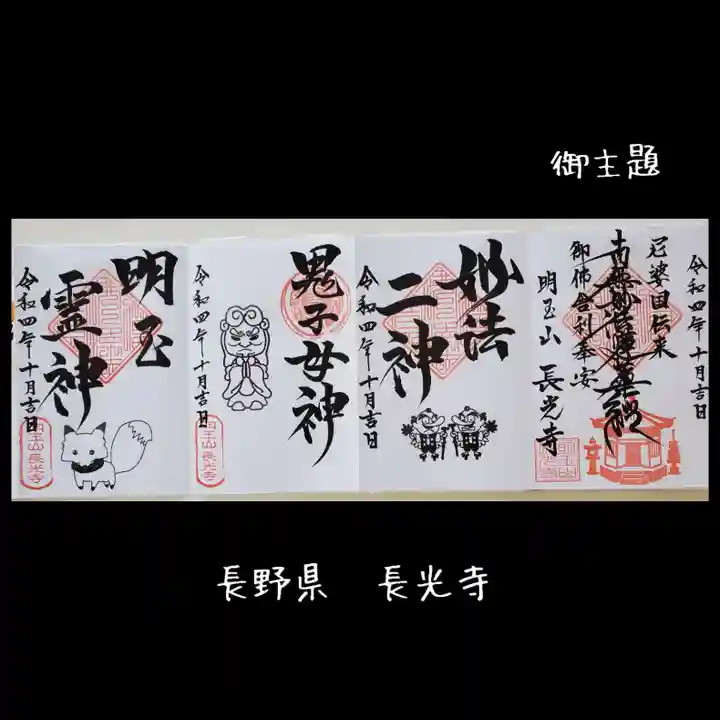 御主題
令和四年十月吉日
尼婆回伝来
南無妙法蓮華経
御佛舎利奉安
明玉山 長光寺
妙法
二神
令和四年十月吉日
鬼子母神
令和四年十月吉日
明玉山長光寺
明玉
霊神
令和四年十月吉日
明玉山長光寺
長野県 長光寺